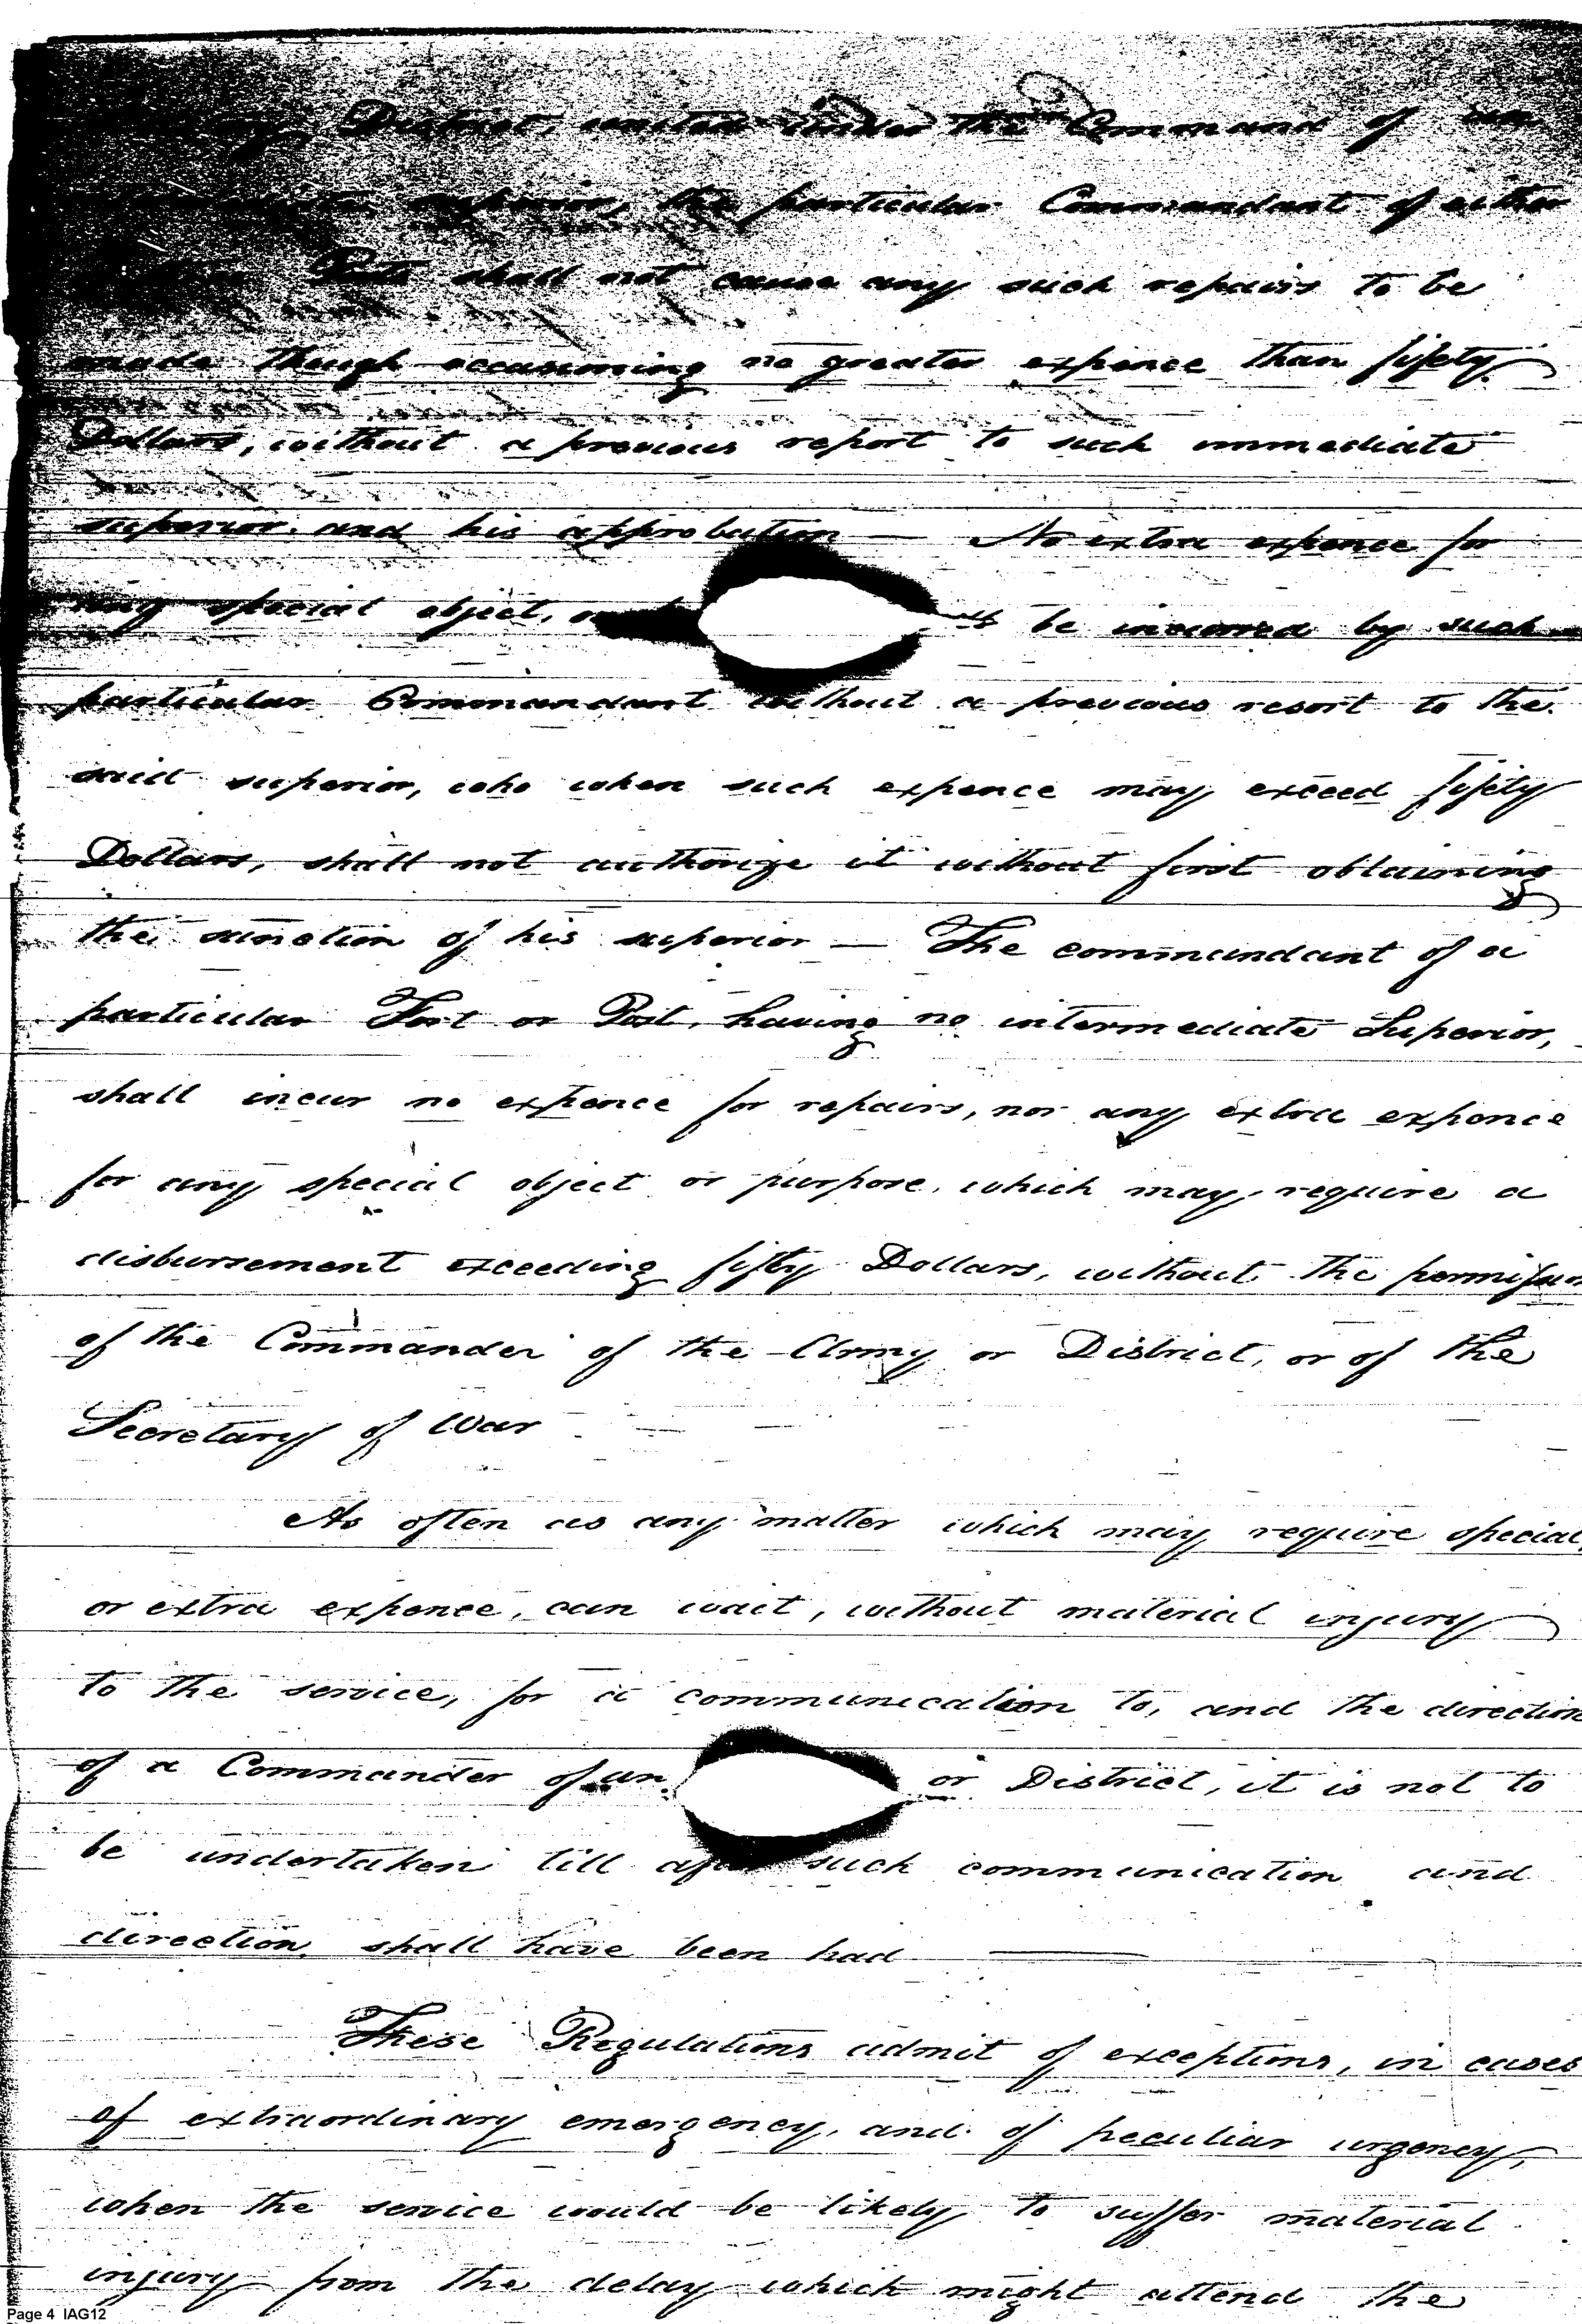 District, united under the Command of an
superior, the particular Commandant of either
Posts shall not cause any such repairs to be
made though occasioning no greater expence than fifety
Dollars, without a previous report to such immediate
superior, and his approbation — No extra expence for
any special object, be incurred by such
particular Commandant without a previous resort to the
said superior, who when such expence may exceed fifety
Dollars, shall not authorize it without first obtaining
the sanction of his superior — The commandant of a
particular Fort or Post, having no intermediate Superior,
shall incur no expence for repairs, nor any extra expence
for any special object or purpose, which may require a
disbursement exceeding fifty Dollars, without the
of the Commander of the Army or District, or of the
Secretary of War
As often as any matter which may require special,
or extra expence, can wait, without material injury
to the service, for a communication to, and the direction
of a Commander of an or District, it is not to
be undertaken till after such communication and
direction, shall have been had
These Regulations admit of exceptions, in cases
of extraordinary emergency, and of peculiar urgency,
when the service would be likely to suffer material
injury from the delay which might attend the
Page 4 IAG12